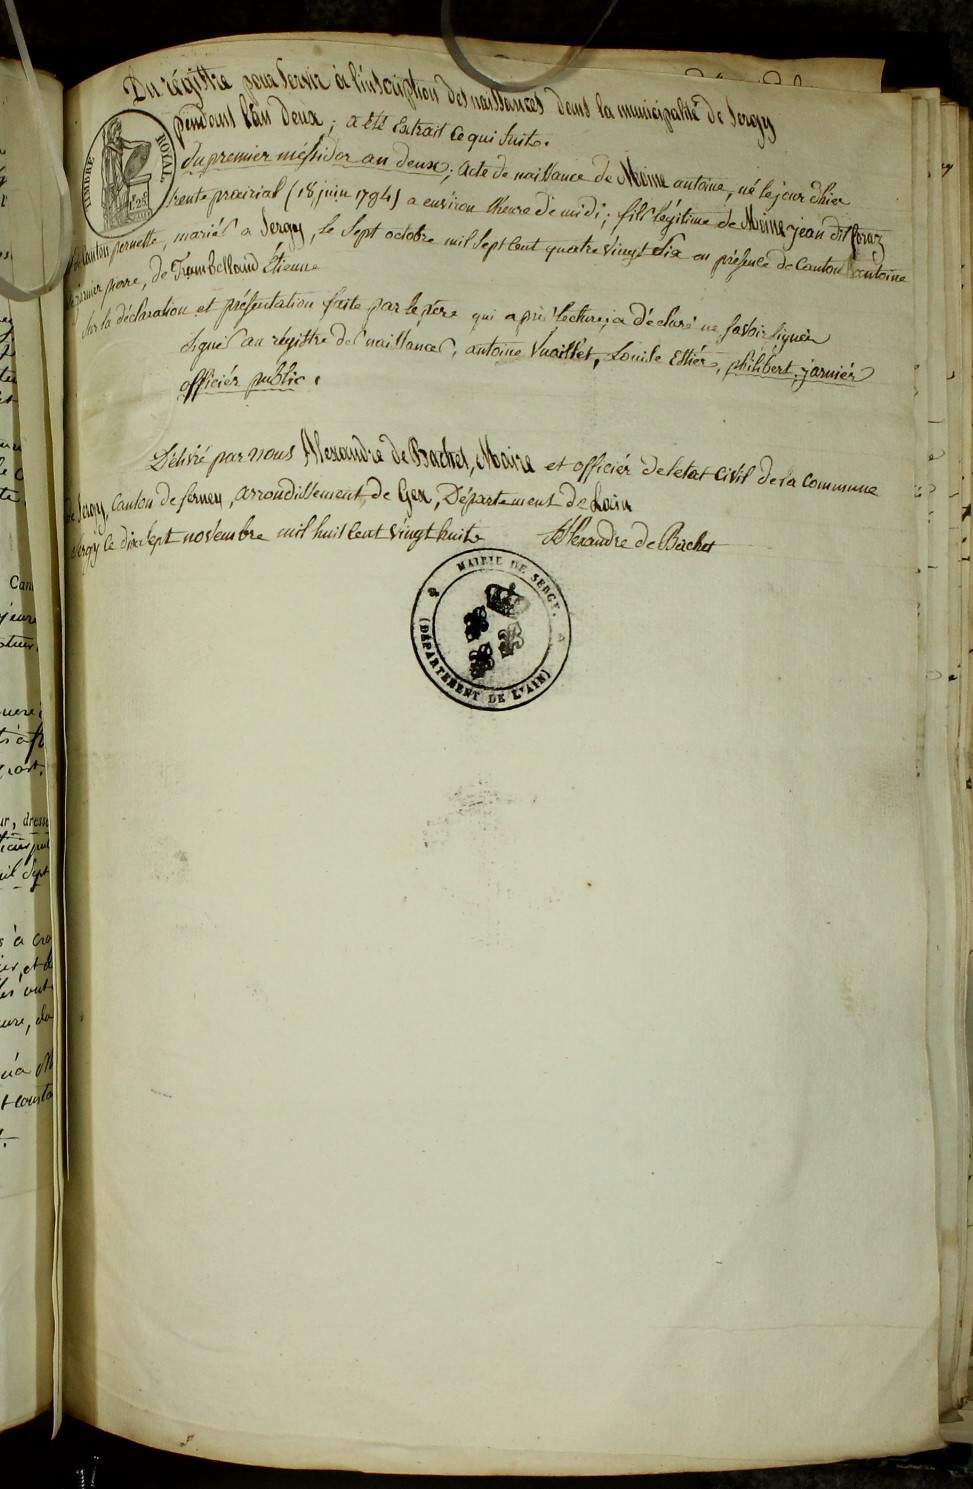 Du régistre pour Servir à l'inscription des naissances dans la municipalité de Sergy
pendant l'an Deux ; a été Extrait ce qui Suit.
TIMBRE ROYAL
1 25
Du premier méssidor an deux ; acte de naissance de Moine antoine, né le jour d'hier
trente prairial (18 juin 1794) a environ l'heure de midi ; fils légitime de Moine jean dit foraz
de Canton pernette, mariés a Sergy, le Sept octobre mil Sept Cent quatre vingt Six en présence de Canton antoine
jarnier pierre, de Trambelland Étienne
Sur la déclaration et présentation faite par le père qui apres lecture, a déclaré ne savoir signer
Signés au régistre des naissances, antoine Vuaillet, Louise Ethiér, philibert jarniér
officiér public.
Délivré par nous Alexandre de Bachet, Maire et officiér de letat Civil de la Commune
de Sergy, Canton de ferney, arrondissement de Gex, Département de Lain
Sergy le dixsept novembre mil huit Cent vingt huit
Alexandre de Bachet
MAIRIE DE SERGY.
(DÉPARTEMENT DE L'AIN)